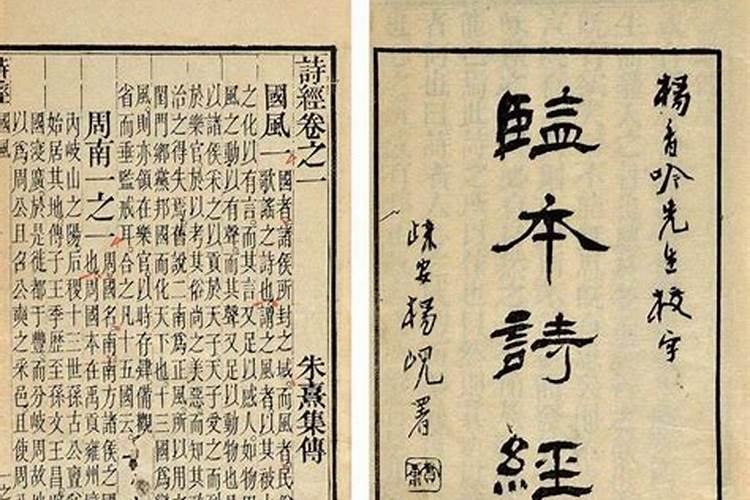 楊香吟先生校字
監本詩經
歸安楊峴署
詩經卷之一 朱熹集傳
國風一
國者諸侯所封之域而風者民俗
歌謠之詩也謂之風者以其被上
之化以有言而其言又足以感人如物
風之動以有聲而其聲又足以動物也
以諸侯采之以貢於天子天子受之而列
於樂官於以考其俗尚之美惡而知其政
治之得失焉舊說二南爲正風所以用
閨門鄉黨邦國而化天下也十三國爲
風則亦領在樂官以時存肄備觀
省而垂監戒耳合之凡十五國云
周南一之一
周國名南南方諸侯之國
也周國本在禹貢雍州
內岐山之陽后稷十三世孫古公亶
始居其地傳子王季歷至孫文王昌
國寖廣於是徙都于豐而分岐周故
以爲周公旦召公奭之采邑且使周
詩經 國風